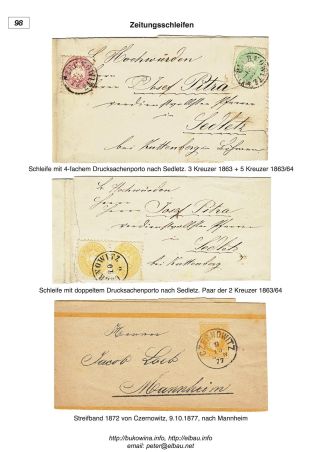 98
Zeitungsschleifen
Sr Hochwürden
Herrn Josef Petra
verdienstvollster Pfarrer
in
Sedletz
bei Kuttenberg in Böhmen
Schleife mit 4-fachem Drucksachenporto nach Sedletz. 3 Kreuzer 1863 + 5 Kreuzer 1863/64
Sr Hochwürden
Herrn Josef Petra
Pfarrer
in
Sedletz
bei Kuttenberg
Schleife mit doppeltem Drucksachenporto nach Sedletz. Paar der 2 Kreuzer 1863/64
CZERNOWITZ
9
10
77
Herrn
Jacob Loeb
Mannheim
Streifband 1872 von Czernowitz, 9.10.1877, nach Mannheim
http://bukowina.info, http://eibau.info
email: peter@eibau.net